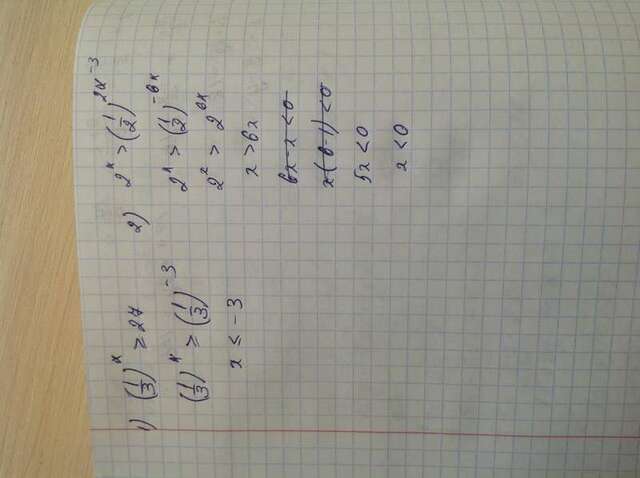 1) (1/3)^x ≥ 27
(1/3)^x ≥ (1/3)^-3
x ≤ -3
2) 2^x > (1/2)^2x-3
2^x > (1/2)^-6x
2^x > 2^6x
x > 6x
6x-x<0
x(6-1)<0
5x<0
x<0